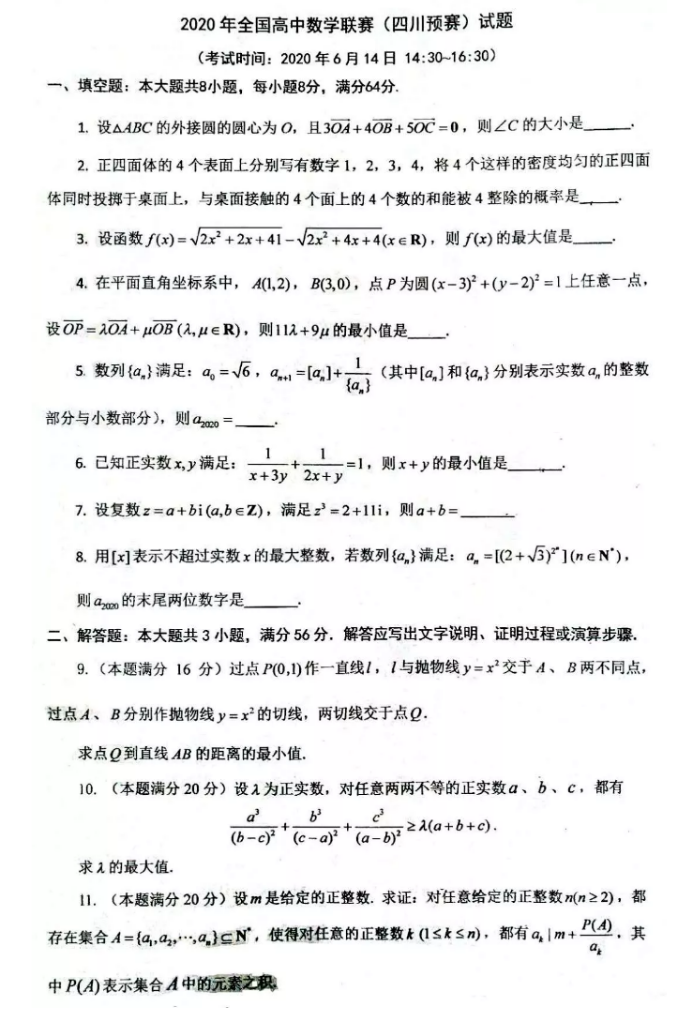 2020 年全国高中数学联赛（四川预赛）试题
（考试时间：2020 年 6 月 14 日 14:30~16:30）
一、填空题：本大题共8小题，每小题8分，满分64分.
1. 设△ABC 的外接圆的圆心为 O，且3\overrightarrow{OA}+4\overrightarrow{OB}+5\overrightarrow{OC}=0，则∠C 的大小是______.
2. 正四面体的 4 个表面上分别写有数字 1，2，3，4，将 4 个这样的密度均匀的正四面
体同时投掷于桌面上，与桌面接触的 4 个面上的 4 个数的和能被 4 整除的概率是______.
3. 设函数 f(x)=\sqrt{2x²+2x+41}-\sqrt{2x²+4x+4}(x∈R)，则 f(x) 的最大值是______.
4. 在平面直角坐标系中， A(1,2)， B(3,0)，点 P 为圆(x-3)²+(y-2)²=1上任意一点，
设\overrightarrow{OP}=λ\overrightarrow{OA}+μ\overrightarrow{OB}(λ,μ∈R)，则11λ+9μ的最小值是______.
5. 数列{a_n}满足：a_0=\sqrt{6}，a_{n+1}=[a_n]+\frac{1}{\{a_n\}}（其中[a_n]和{a_n}分别表示实数a_n的整数
部分与小数部分），则a_{2020}=______.
6. 已知正实数x,y满足：\frac{1}{x+3y}+\frac{1}{2x+y}=1，则x+y的最小值是______.
7. 设复数z=a+bi(a,b∈Z)，满足z³=2+11i，则a+b=______
8. 用[x]表示不超过实数x的最大整数，若数列{a_n}满足：a_n=[(2+\sqrt{3})^{2^n}](n∈N^*)，
则a_{2020}的末尾两位数字是______.
二、解答题：本大题共 3 小题，满分 56 分．解答应写出文字说明、证明过程或演算步骤.
9.（本题满分 16 分）过点P(0,1)作一直线l，l与抛物线y=x²交于 A、 B两不同点，
过点A、 B分别作抛物线y=x²的切线，两切线交于点Q.
求点Q到直线 AB 的距离的最小值.
10. （本题满分20分）设λ为正实数，对任意两两不等的正实数a、b、c，都有
\frac{a³}{(b-c)²}+\frac{b³}{(c-a)²}+\frac{c³}{(a-b)²}≥λ(a+b+c).
求λ的最大值.
11. （本题满分20分）设m是给定的正整数．求证：对任意给定的正整数n(n≥2)，都
存在集合A={a_1,a_2,⋯,a_n}⊆N^*，使得对任意的正整数k (1≤k≤n)，都有a_k|m+\frac{P(A)}{a_k}，其
中P(A)表示集合A中的元素之积.